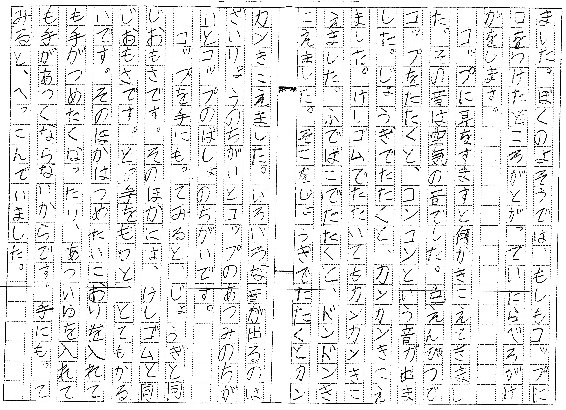 ました。ぼくのよそうでは、もしもコップに
口をつけたところがとがっていたらべろがけ
がをします。
コップに耳をすますと何かきこえてきまし
た。その音は空気の音でした。色えんぴつで
コップをたたくと、コンコンという音が出ま
した。じょうぎでたたくと、カンカンきこえ
ました。けしゴムでたたいてもカンカンきこ
えました。ふでばこでたたくと、ドンドンき
こえました。そこをじょうぎでたたくとカン
カンきこえました。いろいろな音が出るのは
ざいりょうのちがいとコップのあつみのちが
いとコップのばしょのちがいです。
コップを手にもってみると、じょうぎと同
じおもさです。そのほかにも、けしゴムと同
じおもさです。とっ手をもつと、とてもかる
いです。そのほかはつめたいこおりを入れて
も手がつめたくなったり、あついゆを入れて
も手があつくならないからです。手にもって
みると、へっこんでいました。